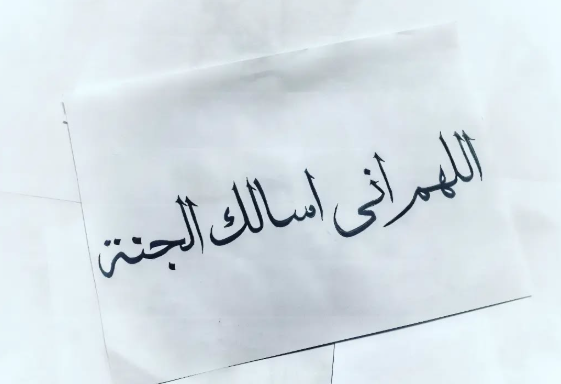 اللهم انى اسالك الجنة